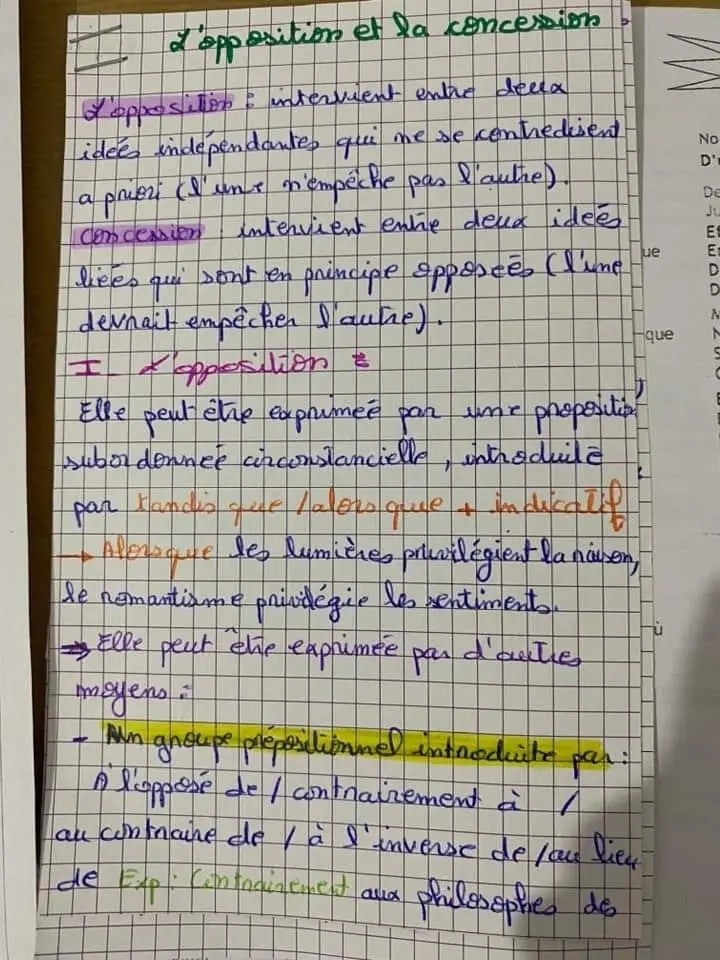 L'opposition et la concession
L'opposition : intervient entre deux
idées indépendantes qui ne se contredisent
a priori (l'une n'empêche pas l'autre).
Concession intervient entre deux idées
liées qui sont en principe opposées (l'une
devrait empêcher l'autre).
I L'opposition :
Elle peut être exprimée par une propositio
subordonnée circonstancielle, introduite
par tandis que / alors que + indicatif
→ Alors que les lumières privilégient la raison,
le romantisme privilégie les sentiments.
⇒ Elle peut être exprimée par d'autres
moyens :
- Un groupe prépositionnel introduite par :
À l'opposé de / contrairement à /
au contraire de / à l'inverse de / au lieu
de Exp : Contrairement aux philosophes des
No
D'
De
Ju
Et
ue
En
D
D
M
que
N
S
ù